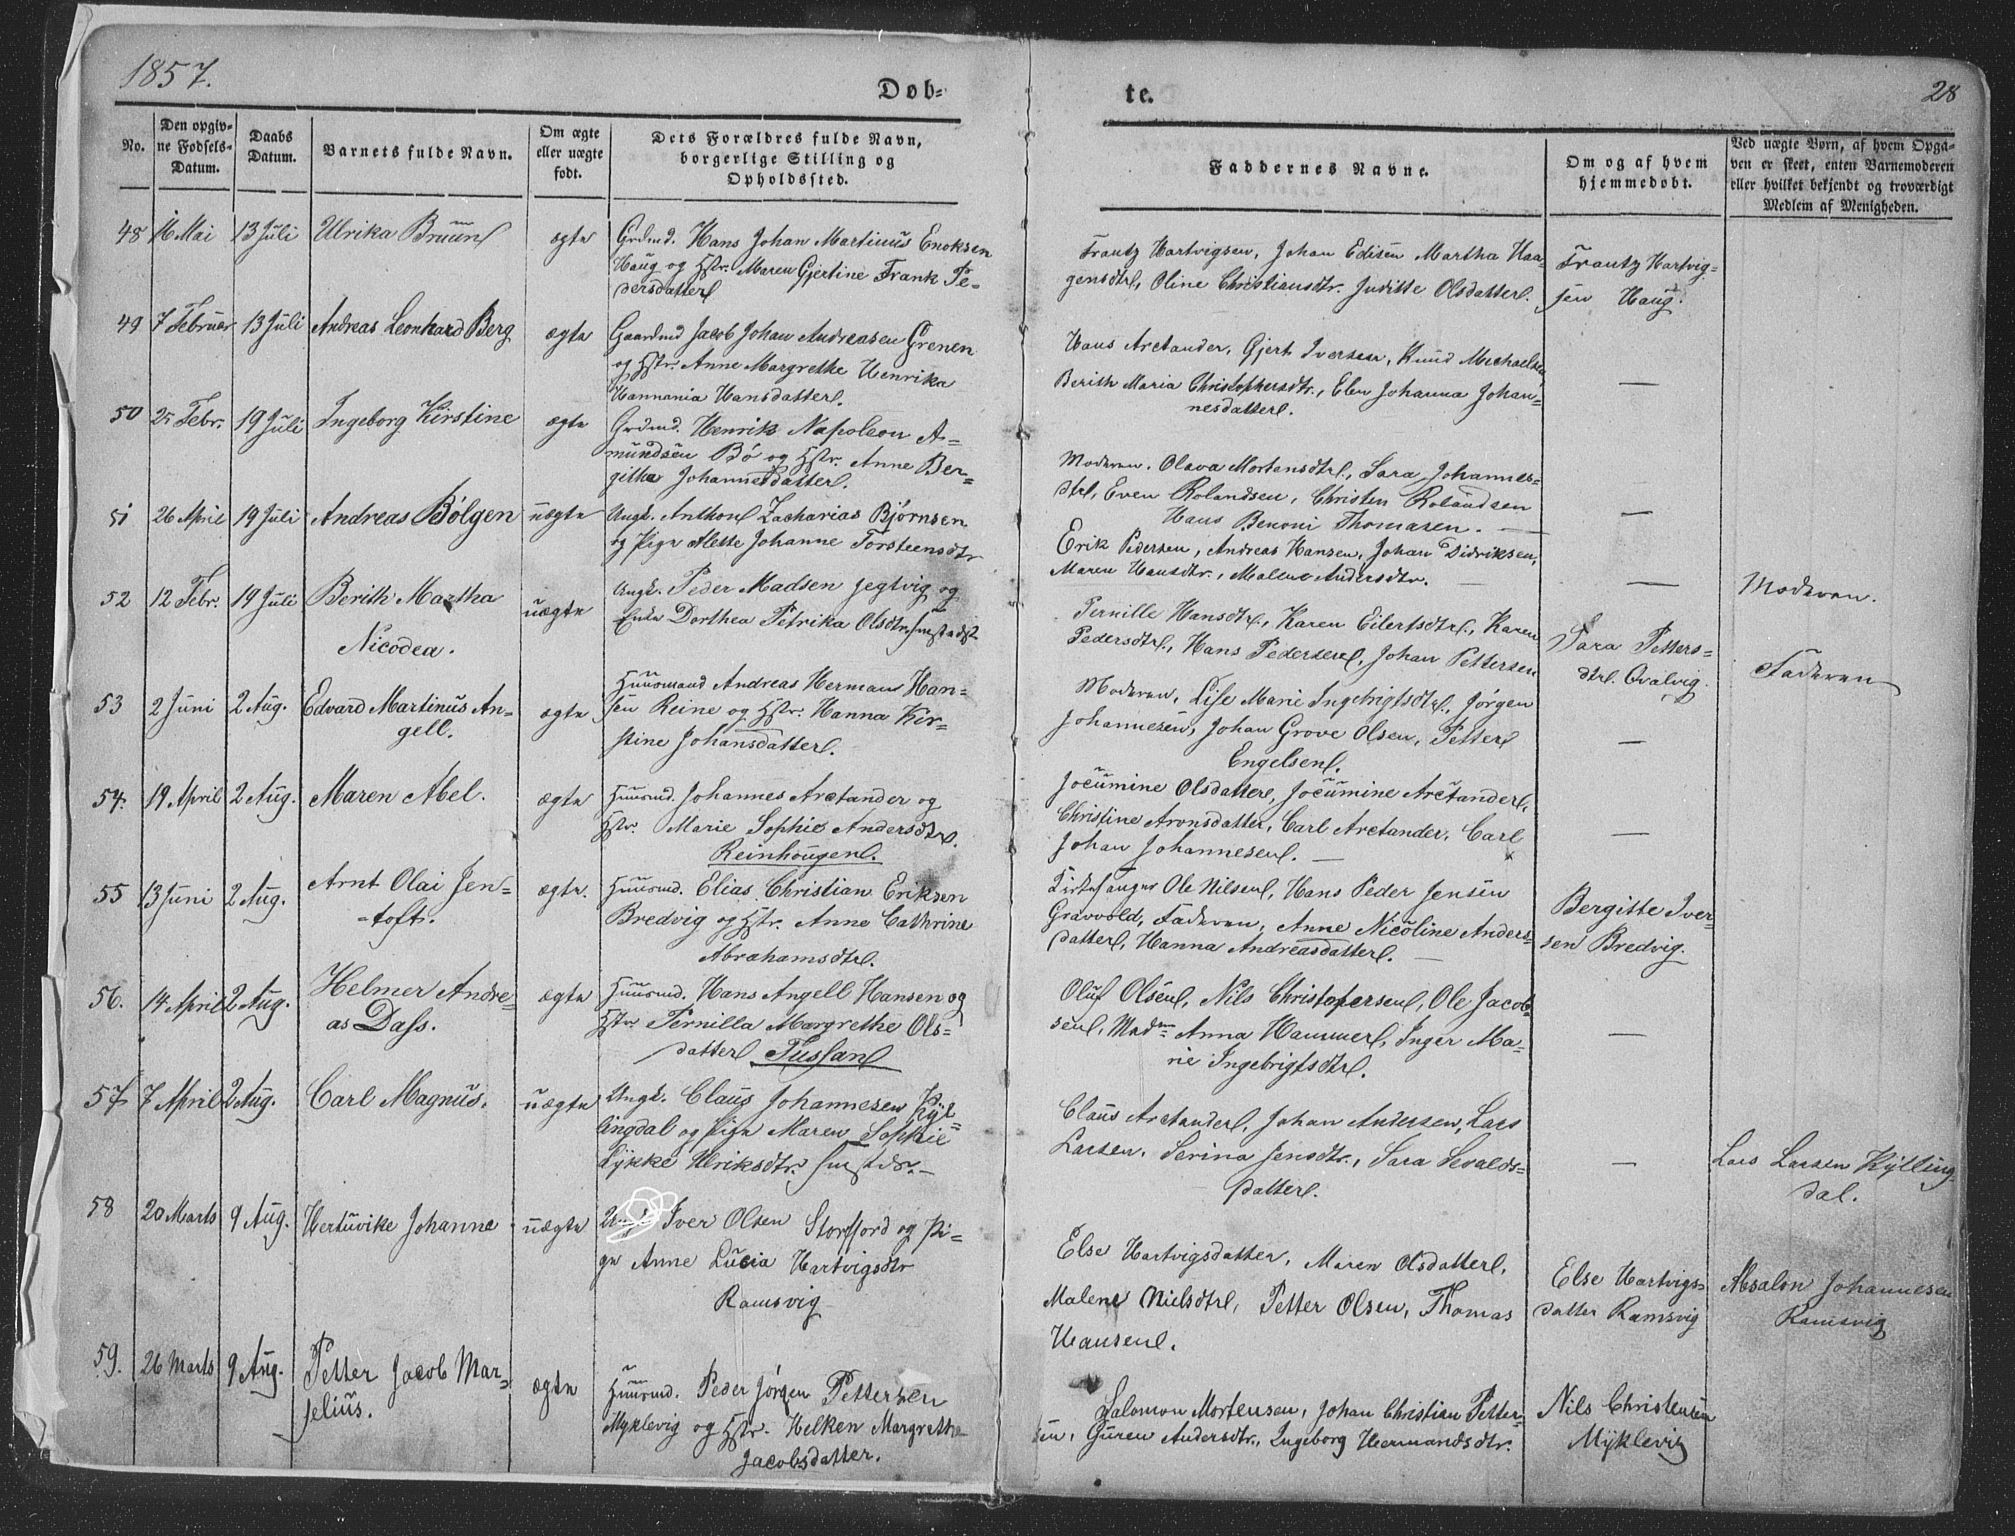 1857.
Døb-
te.
28
No.
Den opgiv-
ne Fødsels-
Datum.
Daabs
Datum.
Barnets fulde Navn.
Om ægte
eller uægte
født.
Dets Forældres fulde Navn,
borgerlige Stilling og
Opholdssted.
Faddernes Navne.
Om og af hvem
hjemmedøbt.
Ved uægte Børn, af hvem Opga-
ven er skeet, enten Barnemoderen
eller hvilket bekjendt og troværdigt
Medlem af Menigheden.
48 16 Mai 13 Juli Ulrika Bruun ægte Grdmd. Hans Johan Martinus Enoksen
Haug og Hstr. Maren Gjertine Frank Pe-
dersdatter
Frantz Hartvigsen, Johan Edisen Martha Haa-
gensdtr, Oline Christiansdtr. Juditte Olsdatter.
Frantz Hartvig-
sen Haug.
49 7 Februar 13 Juli Andreas Leonhard Berg ægte Gaardmd Jacob Johan Andreasen Grenen
og Hstr. Anne Margrethe Henrika
Hannania Hansdatter.
Hans Arctander, Gjert Iversen, Knud Michaelsen,
Berith Maria Christophersdtr., Elen Johanna Johan-
nesdatter.
—
50 25 Febr. 19 Juli Ingeborg Kirstine ægte Grdmd. Henrik Napoleon A-
mundsen Bö og Hstr. Anne Ber-
githa Johannesdatter.
Moderen. Olava Mortensdtr., Sara Johannes-
dtr, Even Rolandsen, Christen Rolandsen
Hans Benoni Thomasen. —
—
51 26 April 19 Juli Andreas Bölgen uægte Ungk. Anthon Zacharias Bjørnsen
og Pige Alette Johanne Torsteensdtr
Erik Pedersen, Andreas Hansen, Johan Didriksen,
Maren Hansdtr., Malene Andersdtr. —
—
Moderen.
52 12 Febr. 19 Juli Berith Martha
Nicodea.
uægte Ungk. Peder Madsen Jegtvig og
Enke Dorthea Petrika Olsdtr.
Pernille Hansdtr., Karen Eilertsdtr., Karen
Pedersdtr., Hans Pedersen, Johan Pettersen
Sara Petters-
dtr. Qvalvig.
Faderen
53 2 Juni 2 Aug. Edvard Martinus An-
gell.
ægte Huusmand Andreas Herman Han-
sen Reine og Hstr. Hanna Kir-
stine Johansdatter.
Moderen, Lise Marie Ingebrigtsdtr., Jørgen
Johannesen, Johan Grove Olsen, Petter
Engelsen.
—
54. 19 April 2 Aug. Maren Abel. ægte Huusmd. Johannes Arctander og
Hstr. Marie Sophie Andersdtr.
Reinhougen.
Jocumine Olsdatter, Jocumine Arctander,
Christine Aronsdatter, Carl Arctander, Carl
Johan Johannesen. —
—
55 13 Juni 2 Aug. Arnt Olai Jen-
-toft.
ægte. Huusmd. Elias Christian Eriksen
Bredvig og Hstr. Anne Cathrine
Abrahamsdtr.
Kirkesanger Ole Nilsen, Hans Peder Jensen
Gravvold, Faderen, Anne Nicoline Anders-
datter, Hanna Andreasdatter. —
Bergitte Iver-
sen Bredvig.
56. 14 April 2 Aug. Helmer Andre-
as Dass.
ægte Huusmd. Hans Angell Hansen og
Hstr Pernilla Margrethe Ols-
datter Tussan
Oluf Olsen, Nils Christofersen, Ole Jacob-
sen, Mad^m Anna Hammer, Inger Ma-
rie Ingebrigtsdtr.
—
57 7 April 2 Aug. Carl Magnus. uægte Ungk. Claus Johannesen Kyl-
lingdal og Pige Maren Sophie
Lykke Ulriksdtr.
Claus Arctander, Johan Andersen, Lars
Larsen. Serina Jensdtr., Sara Sevalds-
datter.
—
Lars Larsen Kylling-
dal.
58 20 Marts 9 Aug. Hertuvike Johanne uægte Iver Olsen Storfjord og Pi-
ge Anne Lucia Hartvigsdtr
Ramsvig
Else Hartvigsdatter, Maren Olsdatter,
Malene Nielsdtr, Petter Olsen, Thomas
Hansen.
Else Hartvigs-
datter Ramsvig
Absalon Johannesen
Ramsvig
59. 26 Marts 9 Aug. Petter Jacob Mar-
selius.
ægte Huusmd. Peder Jørgen Pettersen
Myklevig og Hstr. Helken Margrethe
Jacobsdatter.
Salomon Mortensen, Johan Christian Petter-
sen, Guren Andersdtr., Ingeborg Hermandsdtr.
Nils Christensen
Myklevig